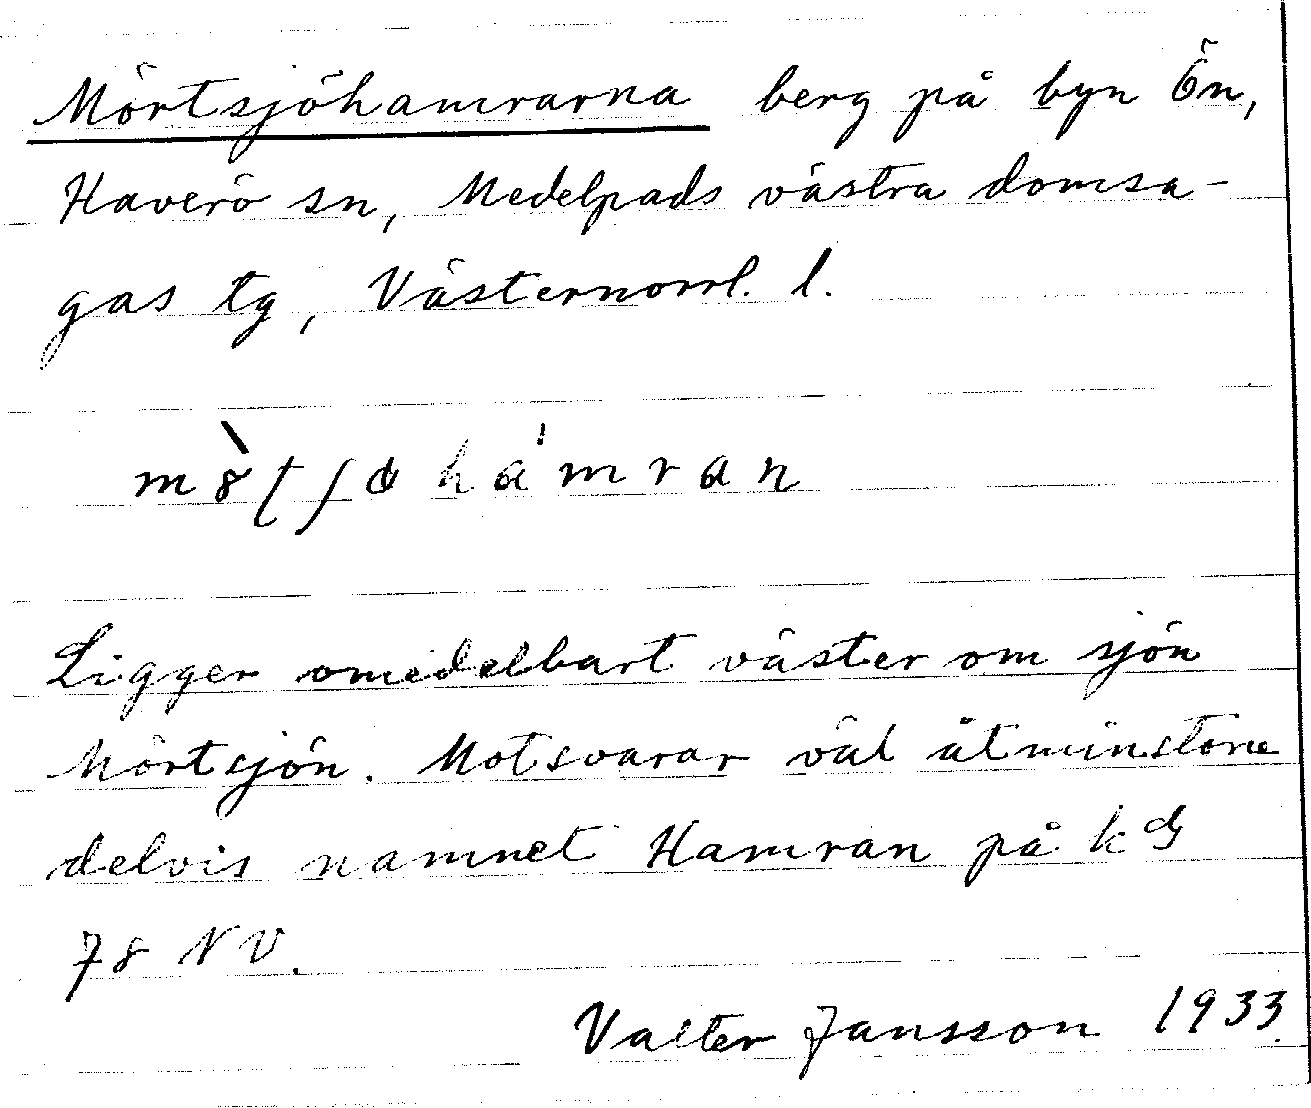 Mörtsjöhamrarna berg på byn Ön,
Haverö sn, Medelpads västra domsa-
gas tg, Västernorrl. l.
Ligger omedelbart väster om sjön
Mörtsjön. Motsvarar väl åtminstone
delvis namnet Hamran på kbl
78 NV.
Valter Jansson 1933.